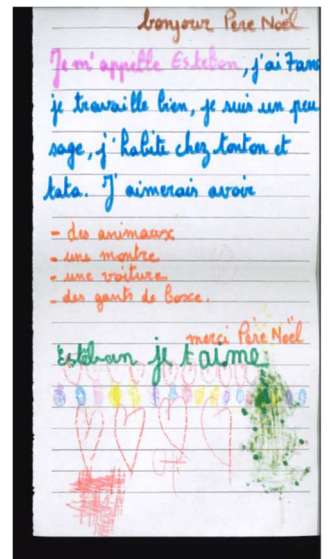 bonjour Père Noël
Je m'appelle Esteban, j'ai 7 ans
je travaille bien, je suis un peu
sage, j'habite chez tonton et
tata. J'aimerais avoir
- des animaux
- une montre
- une voiture
- des gants de boxe.
merci Père Noël
Estéban je t'aime